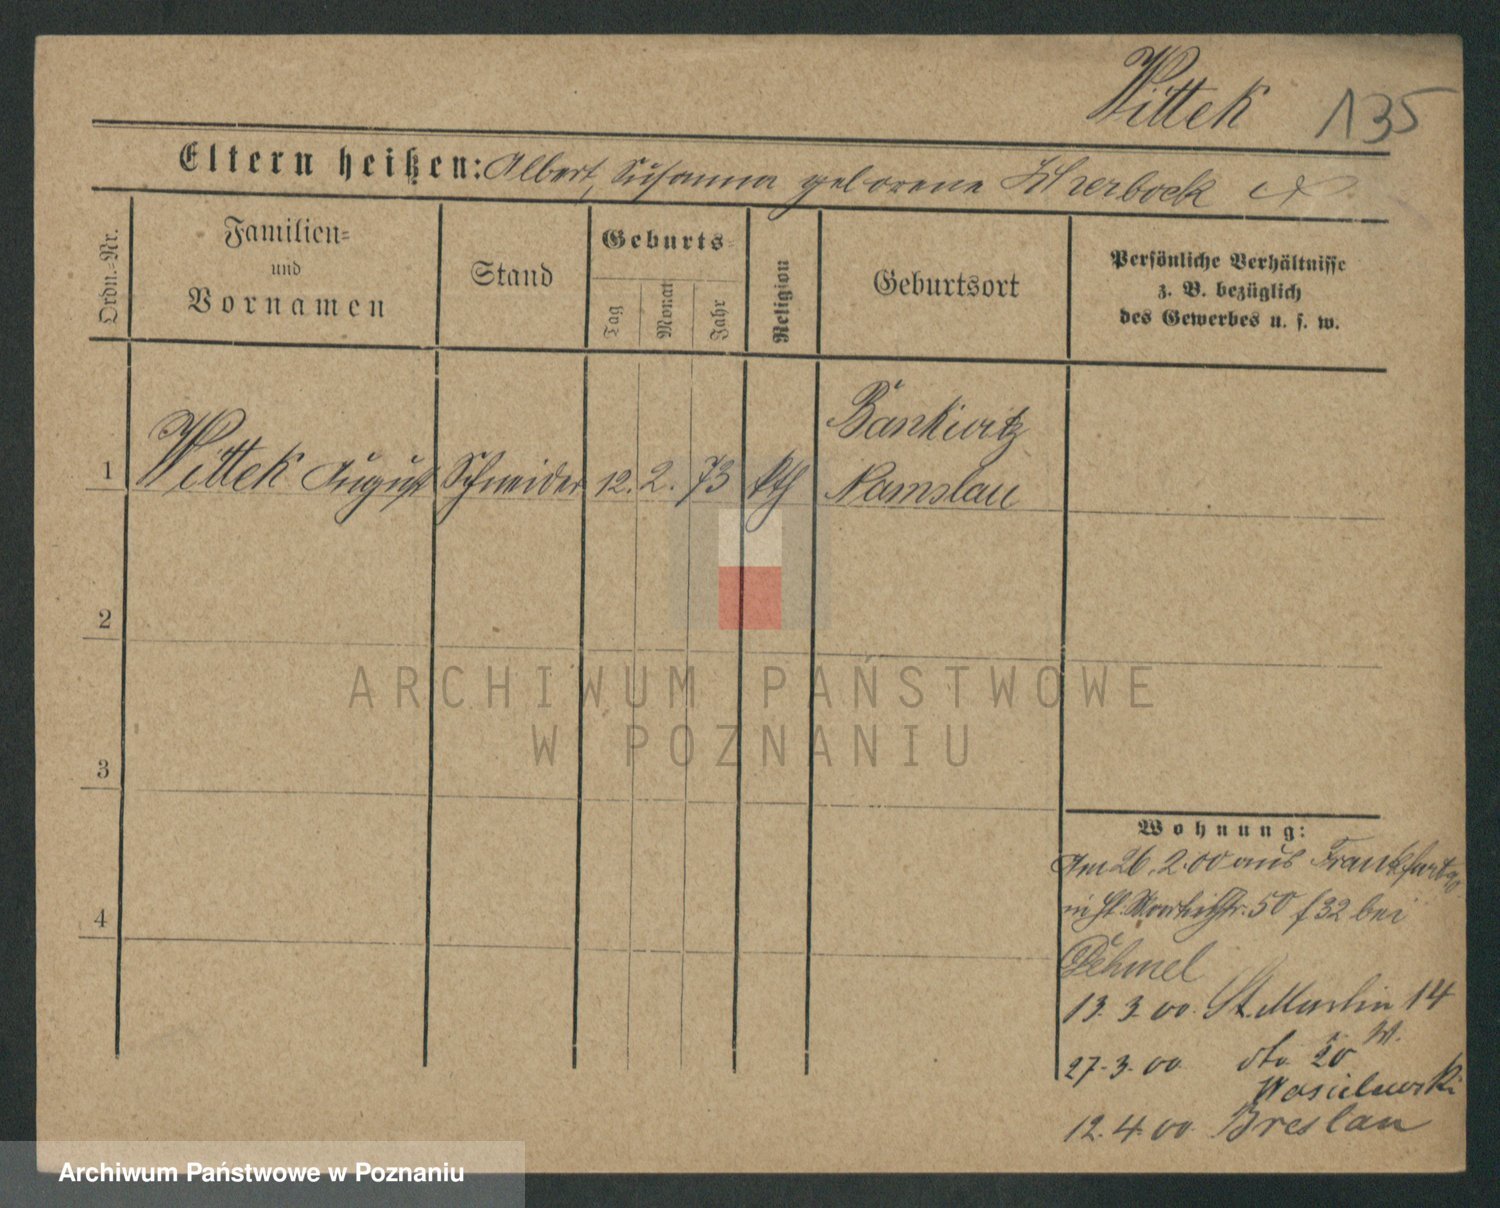 Wittek 135
Eltern heißen: Albert, Susanna geborene
Ordn.-Nr.
Familien-
und
Vornamen
Stand
Geburts-
Tag
Monat
Jahr
Religion
Geburtsort
Persönliche Verhältnisse
z. B. bezüglich
des Gewerbes u. s. w.
Bankwitz
1 Wittek August Schneider 12. 2. 73 kth Namslau
2
ARCHIWUM PAŃSTWOWE
W POZNANIU
3
Wohnung:
Am 26. 2. 00 aus Frankfurt
in St. 50 f 32 bei
4
Dehmel
13. 3. 00. St. Martin 14
27. 3. 00 dto 20 W.
Wasielewski
12. 4. 00. Breslau
Archiwum Państwowe w Poznaniu